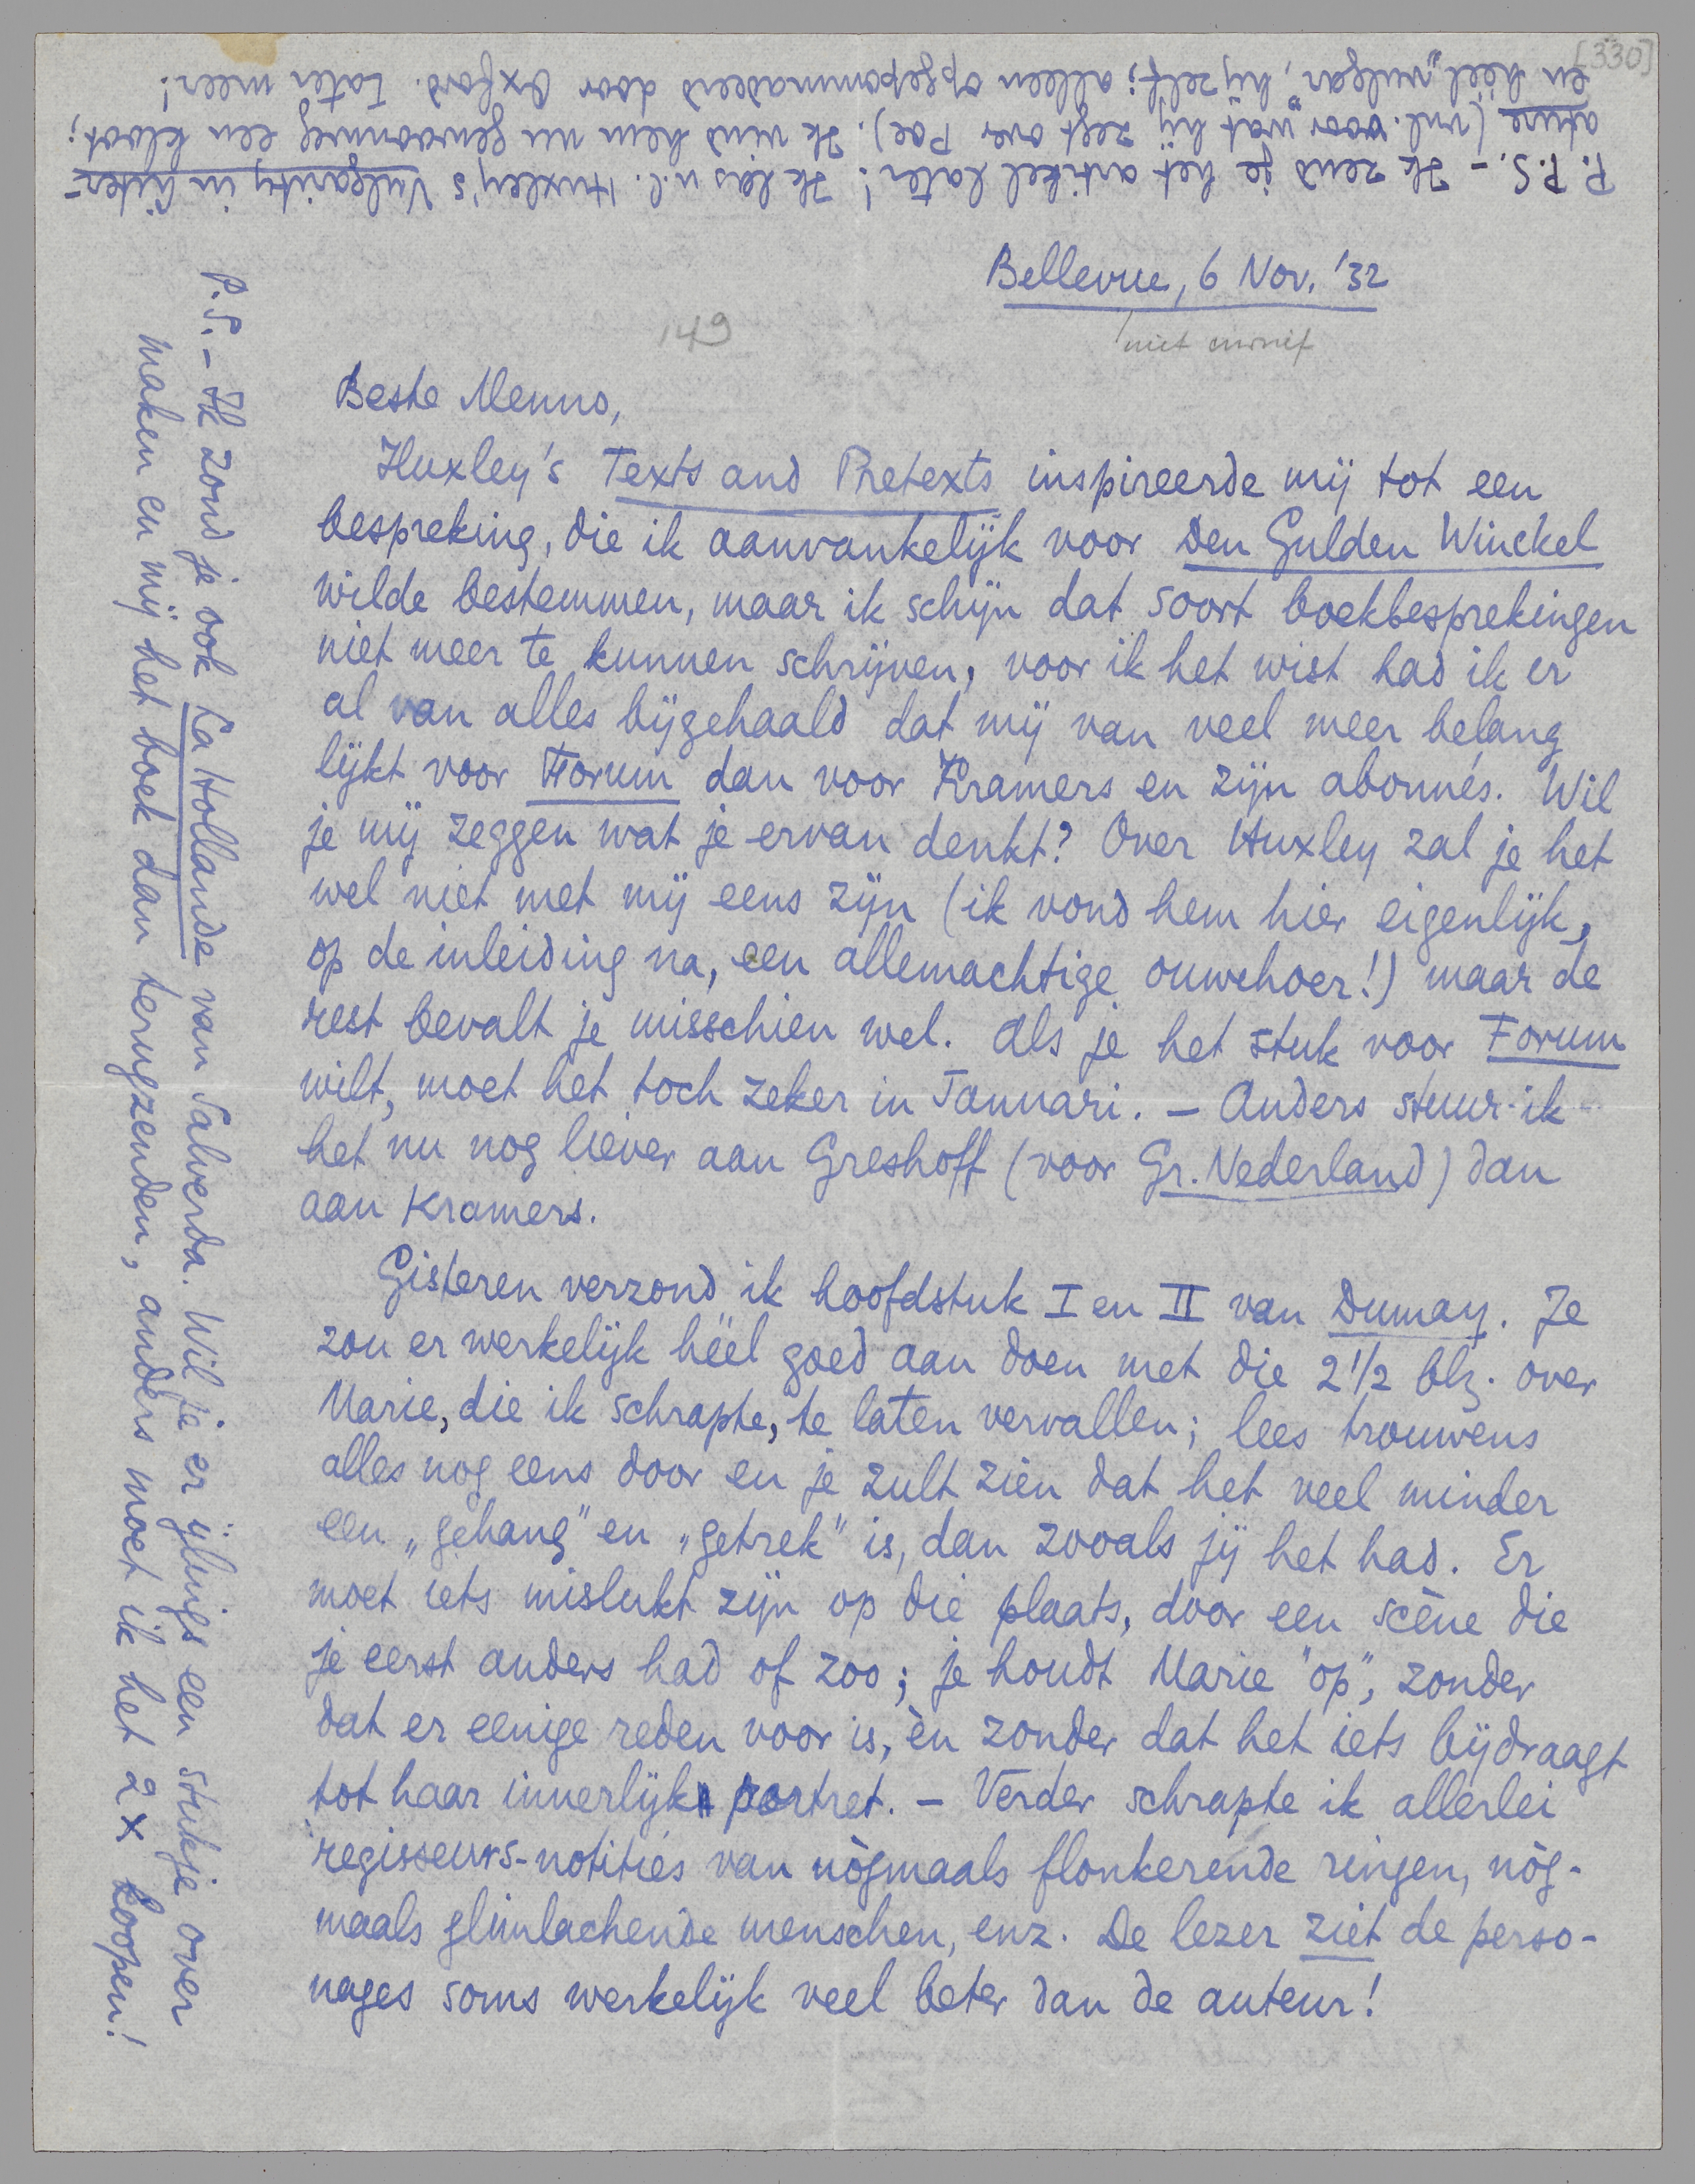 [330]
Bellevue, 6 Nov. '32
149
niet
Beste Menno,
Huxley's Texts and Pretexts inspireerde mij tot een
bespreking, die ik aanvankelijk voor Den Gulden Winckel
wilde bestemmen, maar ik schijn dat soort boekbesprekingen
niet meer te kunnen schrijven, voor ik het wist had ik er
al van alles bijgehaald dat mij van veel meer belang
lijkt voor Forum dan voor Kramers en zijn abonnés. Wil
je mij zeggen wat je ervan denkt? Over Huxley zal je het
wel niet met mij eens zijn (ik vond hem hier eigenlijk,
op de inleiding na, een allemachtige ouwehoer!) maar de
rest bevalt je misschien wel. Als je het stuk voor Forum
wilt, moet het toch zeker in Januari. – Anders stuur ik
het nu nog liever aan Greshoff (voor Gr. Nederland) dan
aan Kramers.
Gisteren verzond ik hoofdstuk I en II van Dumay. Je
zou er werkelijk héél goed aan doen met die 2 1/2 blz. over
Marie, die ik schrapte, te laten vervallen; lees trouwens
alles nog eens door en je zult zien dat het veel minder
een „gehang" en „getrek" is, dan zooals jij het had. Er
moet iets mislukt zijn op die plaats, door een scène die
je eerst anders had of zoo; je houdt Marie "op", zonder
dat er eenige reden voor is, èn zonder dat het iets bijdraagt
tot haar innerlijk portret. – Verder schrapte ik allerlei
regisseurs-notities van nògmaals flonkerende ringen, nòg-
maals glimlachende menschen, enz. De lezer ziet de perso-
nages soms werkelijk veel beter dan de auteur!
P.S. – Ik zond je ook La Hollande van Salverda. Wil je er ijlings een stukje over
maken en mij het boek dan terugzenden, anders moet ik het 2 x koopen!
P.P.S. – Ik zend je het artikel later! Ik lees n.l. Huxley's Vulgarity in Liter-
ature (vnl. voor wat hij zegt over Poe). Ik vind hem nu gewoonweg een kloot;
en héél „vulgar", hijzelf; alleen opgepommadeerd door Oxford. Later meer!